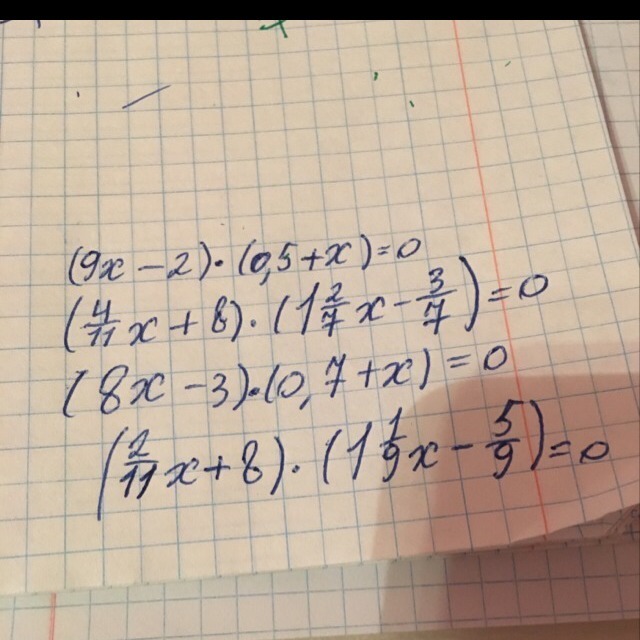 (9x - 2) · (0,5 + x) = 0
(4/11 x + 8) · (1 2/7 x - 3/7) = 0
(8x - 3) · (0,7 + x) = 0
(2/11 x + 8) · (1 1/9 x - 5/9) = 0